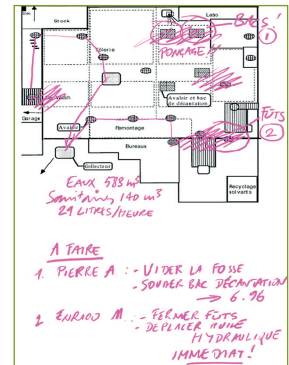 Stock
Labo
BACS!
1
PONÇAGE
Avaloir et bac
de décantation
FUTS
2
Garage
Avaloir
Remontage
Bureaux
Collecteur
Recyclage
solvants
EAUX 589 m³
Sanitaires 140 m³
29 LITRES/HEURE
A FAIRE
1. PIERRE A : - VIDER LA FOSSE
- SONDER BAC DÉCANTATION
→ 6.96
2 ENRICO M. : - FERMER FUTS
- DEPLACER HUILE
HYDRAULIQUE
IMMEDIAT!